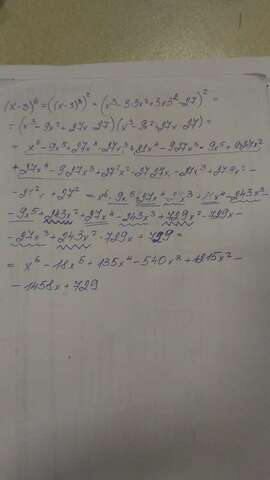 (x-3)⁶ = ((x-3)³)² = (x³-3·3x²+3x3²-27)² =
= (x³-9x²+27x-27)(x³-9x²+27x-27) =
= x⁶-9x⁵+27x⁴-27x³
+27x⁴-9·27x³+27²x²-27·27x-27x³+27·9x²-
-27²x+27² = x⁶-9x⁵+27x⁴-27x³-9x⁵+81x⁴-243x³
-9x⁵+243x²+27x⁴-243x³+729x²-729x-
-27x³+243x²-729x+729=
= x⁶-18x⁵+135x⁴-540x³+1215x²-
-1458x+729